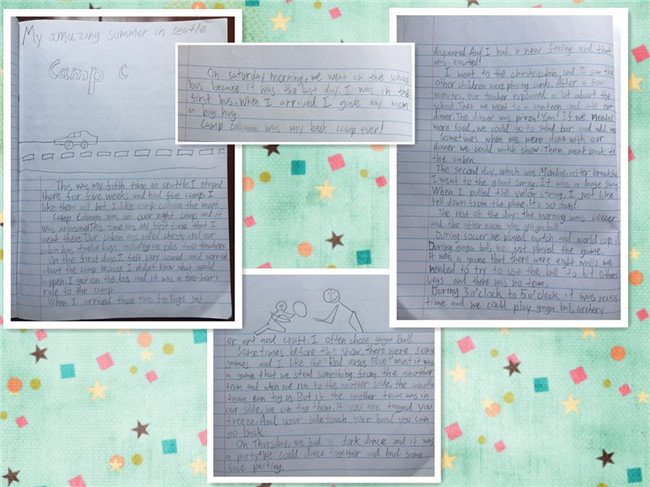 My amazing summer in seattle
Camp C
This was my fifth time in seattle. I stayed
there for five weeks and had five camps. I
like them all but I like camp the most.
Camp was an over night camp and it
was amazing. This time was my first time that I
went there. Our cabin was called christy and our
cabin has twelve boys including me plus two teachers
On the first day, I felt very scared and worried
about the camp because I didn't know what would
happen. I got on the bus and it was a two hours
ride to the camp.
When I arrived those two feelings
disapeared. And I had a new feeling and that
was excited!
I went to the christy cabin, and I saw the
other children were playing cards. After a few
minutes, our teacher explained a lot about the
school. Then we went to a canteen and ate our
dinner. The dinner was pizza! Yum! If we needed
more food, we could go to salad bar and add more
Sometimes when we were done with our
dinner we could watch show. Then went back to
the cabin.
The second day, which was Monday, after breakfast
I went to the giant swing. It was a huge swing
When I pulled the yellow string, I just like
fell down from the plane. It's so fun!
The rest of the day: the morning was soccer
and the afternoon was gaga ball.
During soccer we played match and world cup
During gaga ball, we just played the game.
It was a game that there were eight walls we
needed to try to use the ball to hit others
legs and there was no team.
During 3 o'clock to 5 o'clock it was access
time and we could play gaga ball, archery
or art and craft. I often chose gaga ball.
Sometimes before the show, there were some
games and I like the "Red arrow, Blue" most. It was
a game that we steal something from the another
team and when we run to the another side, the another
team can tag us. But if the another team was in
our side, we can tag them. If you are tagged you
freeze. And your side touch your hand you can
go back.
On Thursday, we had a dark dance and it was
a party! We could dance together and had some
face painting.
On saturday morning, we went on the school
bus because it was the last day. I was in the
first bus. When I arrived I give my mom
a big hug.
Camp was my best camp ever!